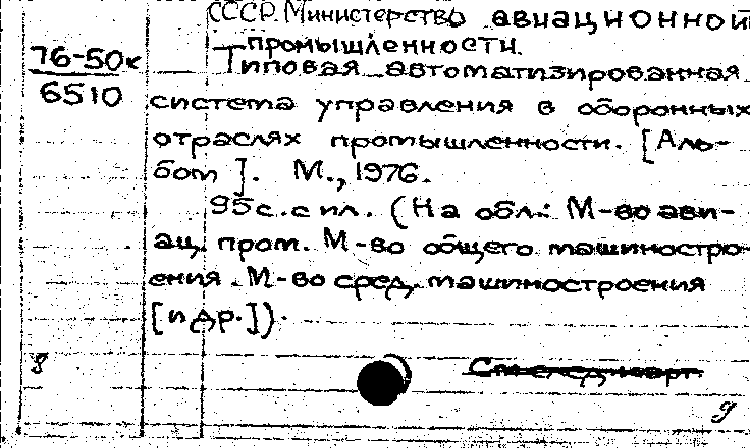 СССР. Министерство авиационной
промышленности.
76-50к
6510
Типовая автоматизированная
система управления в оборонных
отраслях промышленности. [Аль-
бом]. М., 1976.
95с. с ил. (На обл.: М-во ави-
ац. пром. М-во общего машиностро-
ения. М-во сред. машиностроения
[и др.]).
8
См след. карт.
9